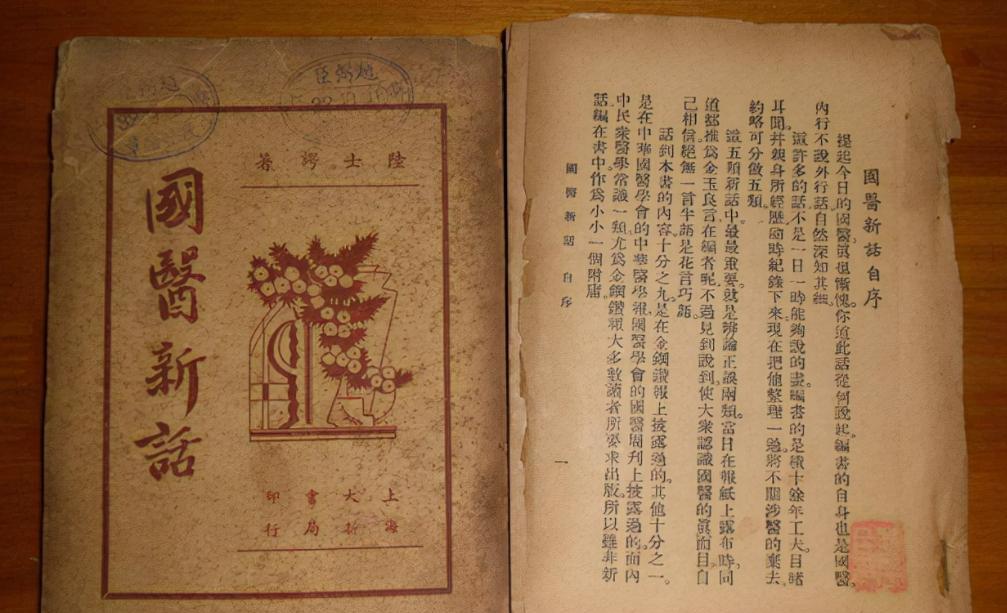 陸士諤著
國醫新話
上海
大新
書局
印行
國醫新話自序
提起今日的國醫眞也慚愧。你道此話從何說起。編書的自身也是國醫
內行不說外行話。自然深知其細。
這許多的話不是一日一時能夠說的盡。編書的是積十餘年工夫目睹
耳聞幷親身所經歷。隨時紀錄下來現在把他整理一過將不關涉醫的棄去
約略可分做五類。
這五類新話中。最最重要。就是辨論正誤兩類。當日在報紙上露布時。同
道都推爲金玉良言在編者呢不過見到說到。使大衆認識國醫的眞面目。自
己相信絕無一言半語是花言巧語。
話到本書的內容。十分之九是在金鋼鑽報上披露過的。其他十分之一。
是在中華國醫學會的中華醫學報國醫學會的國醫周刊上披露過的。而內
中民衆醫學常識一類。尤爲金鋼鑽報大多數讀者所要求出版。所以雖非新
話編在書中作爲小小一個附庸。
國醫新話 自序
一